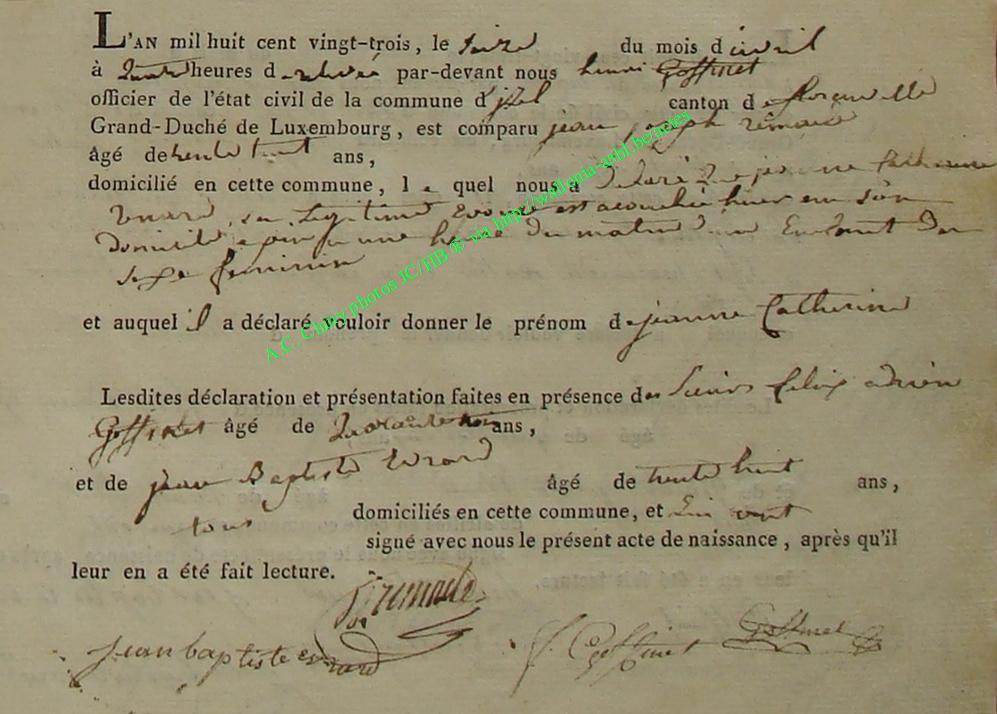 L'AN mil huit cent vingt-trois, le seize du mois d'avril
à quatre heures de relevée par-devant nous henri Goffinet
officier de l'état civil de la commune d'izel canton de florenville
Grand-Duché de Luxembourg, est comparu jean joseph
âgé de trente huit ans,
domicilié en cette commune, le quel nous a déclaré que jeanne Catherine
son Legitime Epouse est acouchée hier en son
domicile a une heure du matin d'un Enfant du
sexe feminin
et auquel il a déclaré vouloir donner le prénom de jeanne Catherine
Lesdites déclaration et présentation faites en présence des Sieurs felix adrien
Goffinet âgé de quarante ans,
et de jean Baptiste Evrard âgé de trente huit ans,
tous domiciliés en cette commune, et qui ont
signé avec nous le présent acte de naissance, après qu'il
leur en a été fait lecture.
jean baptiste evrard F. Goffinet Goffinet
A.C. Chiny photos JC/HB ® via http://wallonia-asbl.be/actes